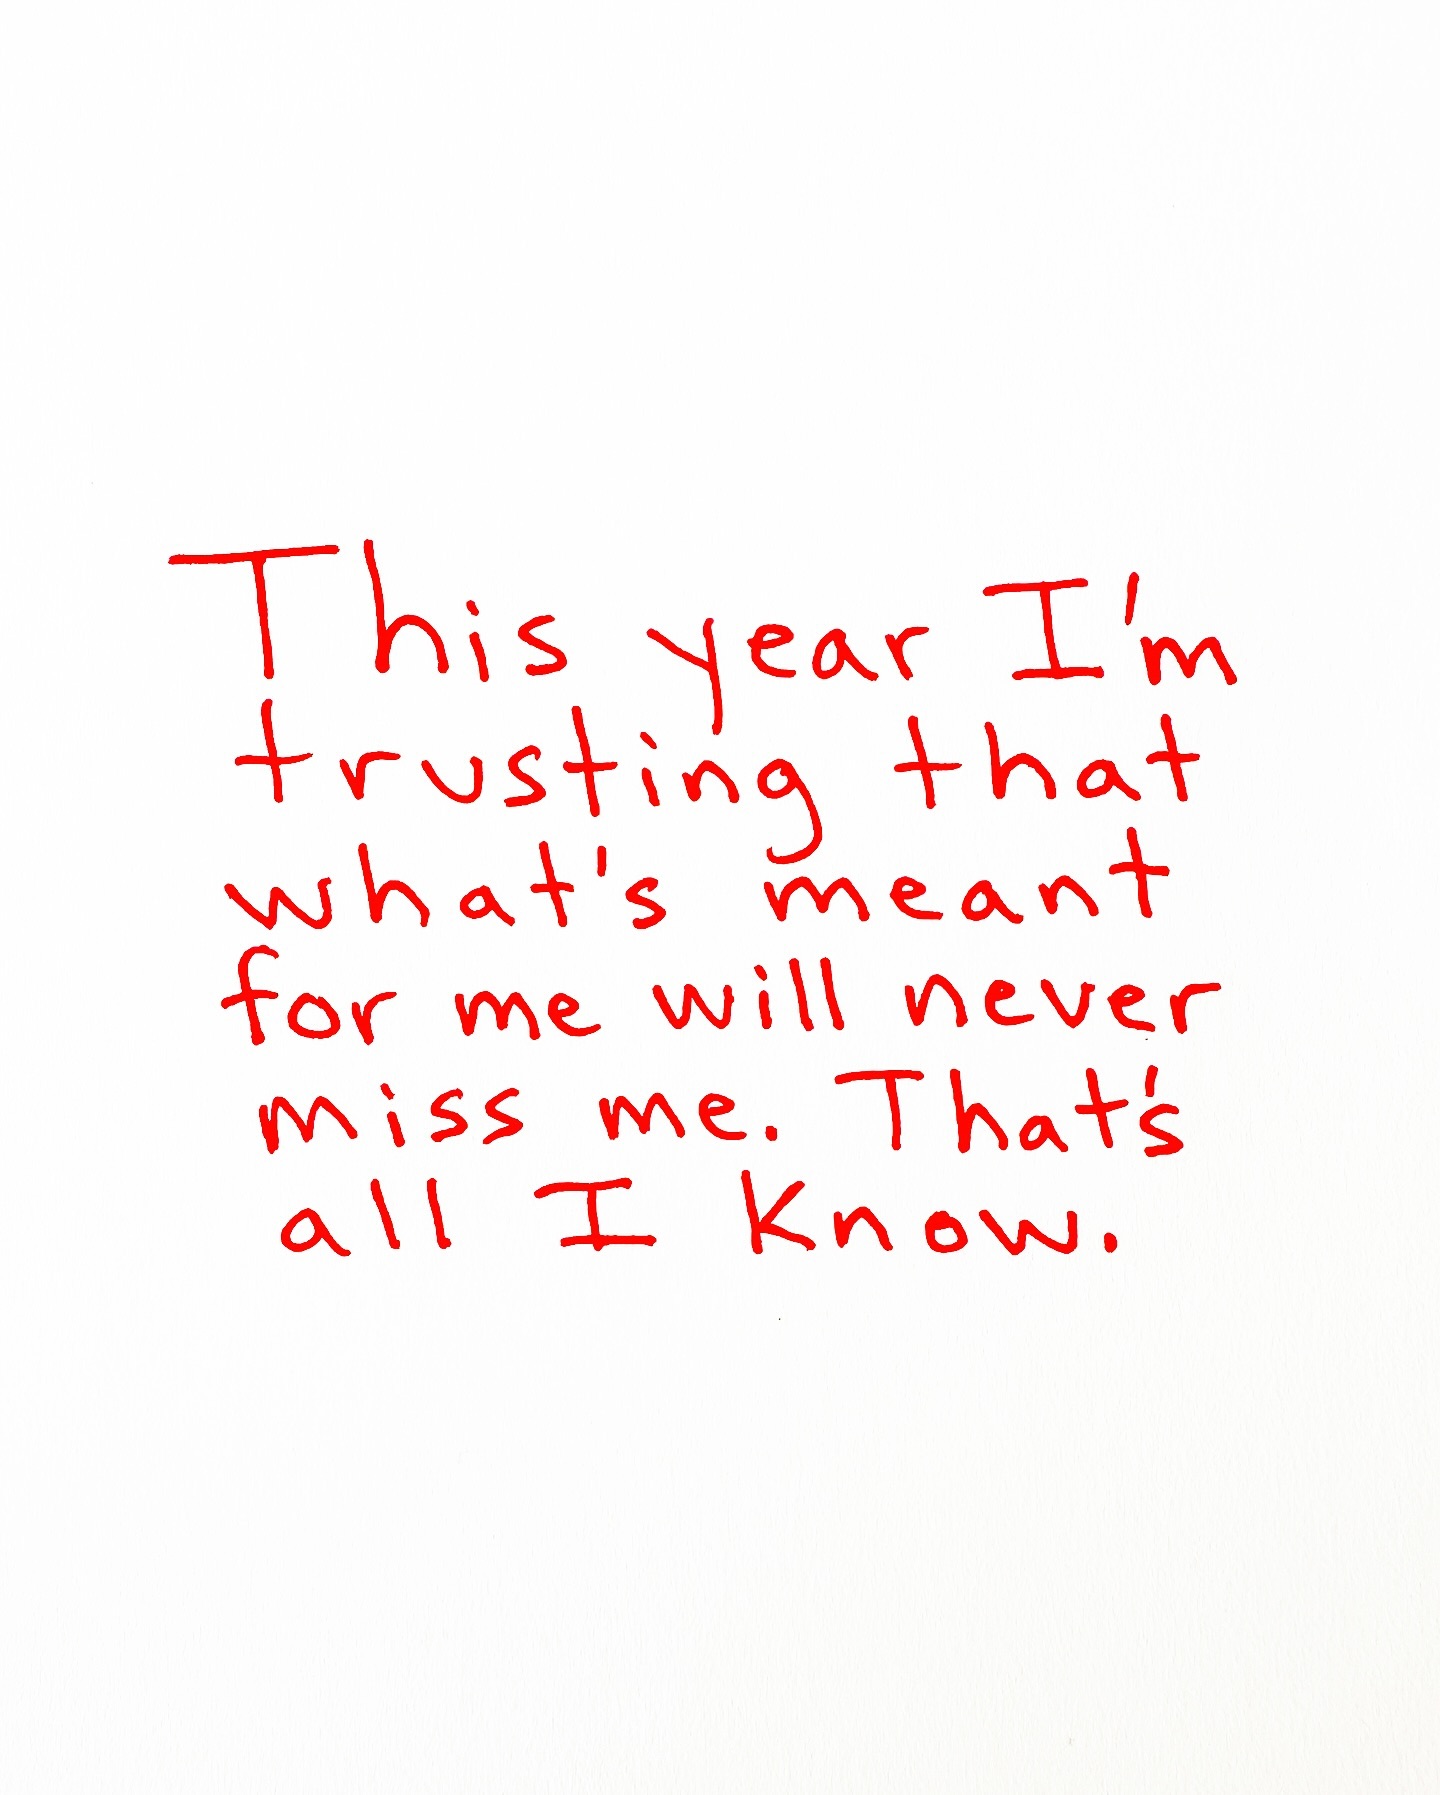 This year I'm
trusting that
what's meant
for me will never
miss me. That's
all I know.